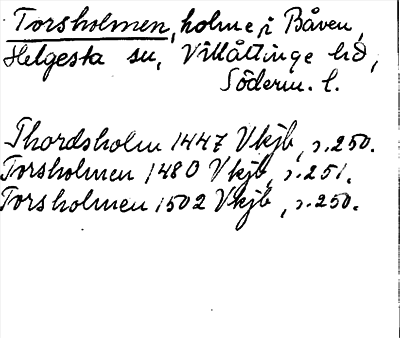 Torsholmen, holme i Båven,
Helgesta sn, Villåttinge hd,
Söderm. l.
Thordsholm 1447 Vkjb, s. 250.
Torsholmen 1480 Vkjb, s. 251.
Torsholmen 1502 Vkjb, s. 250.